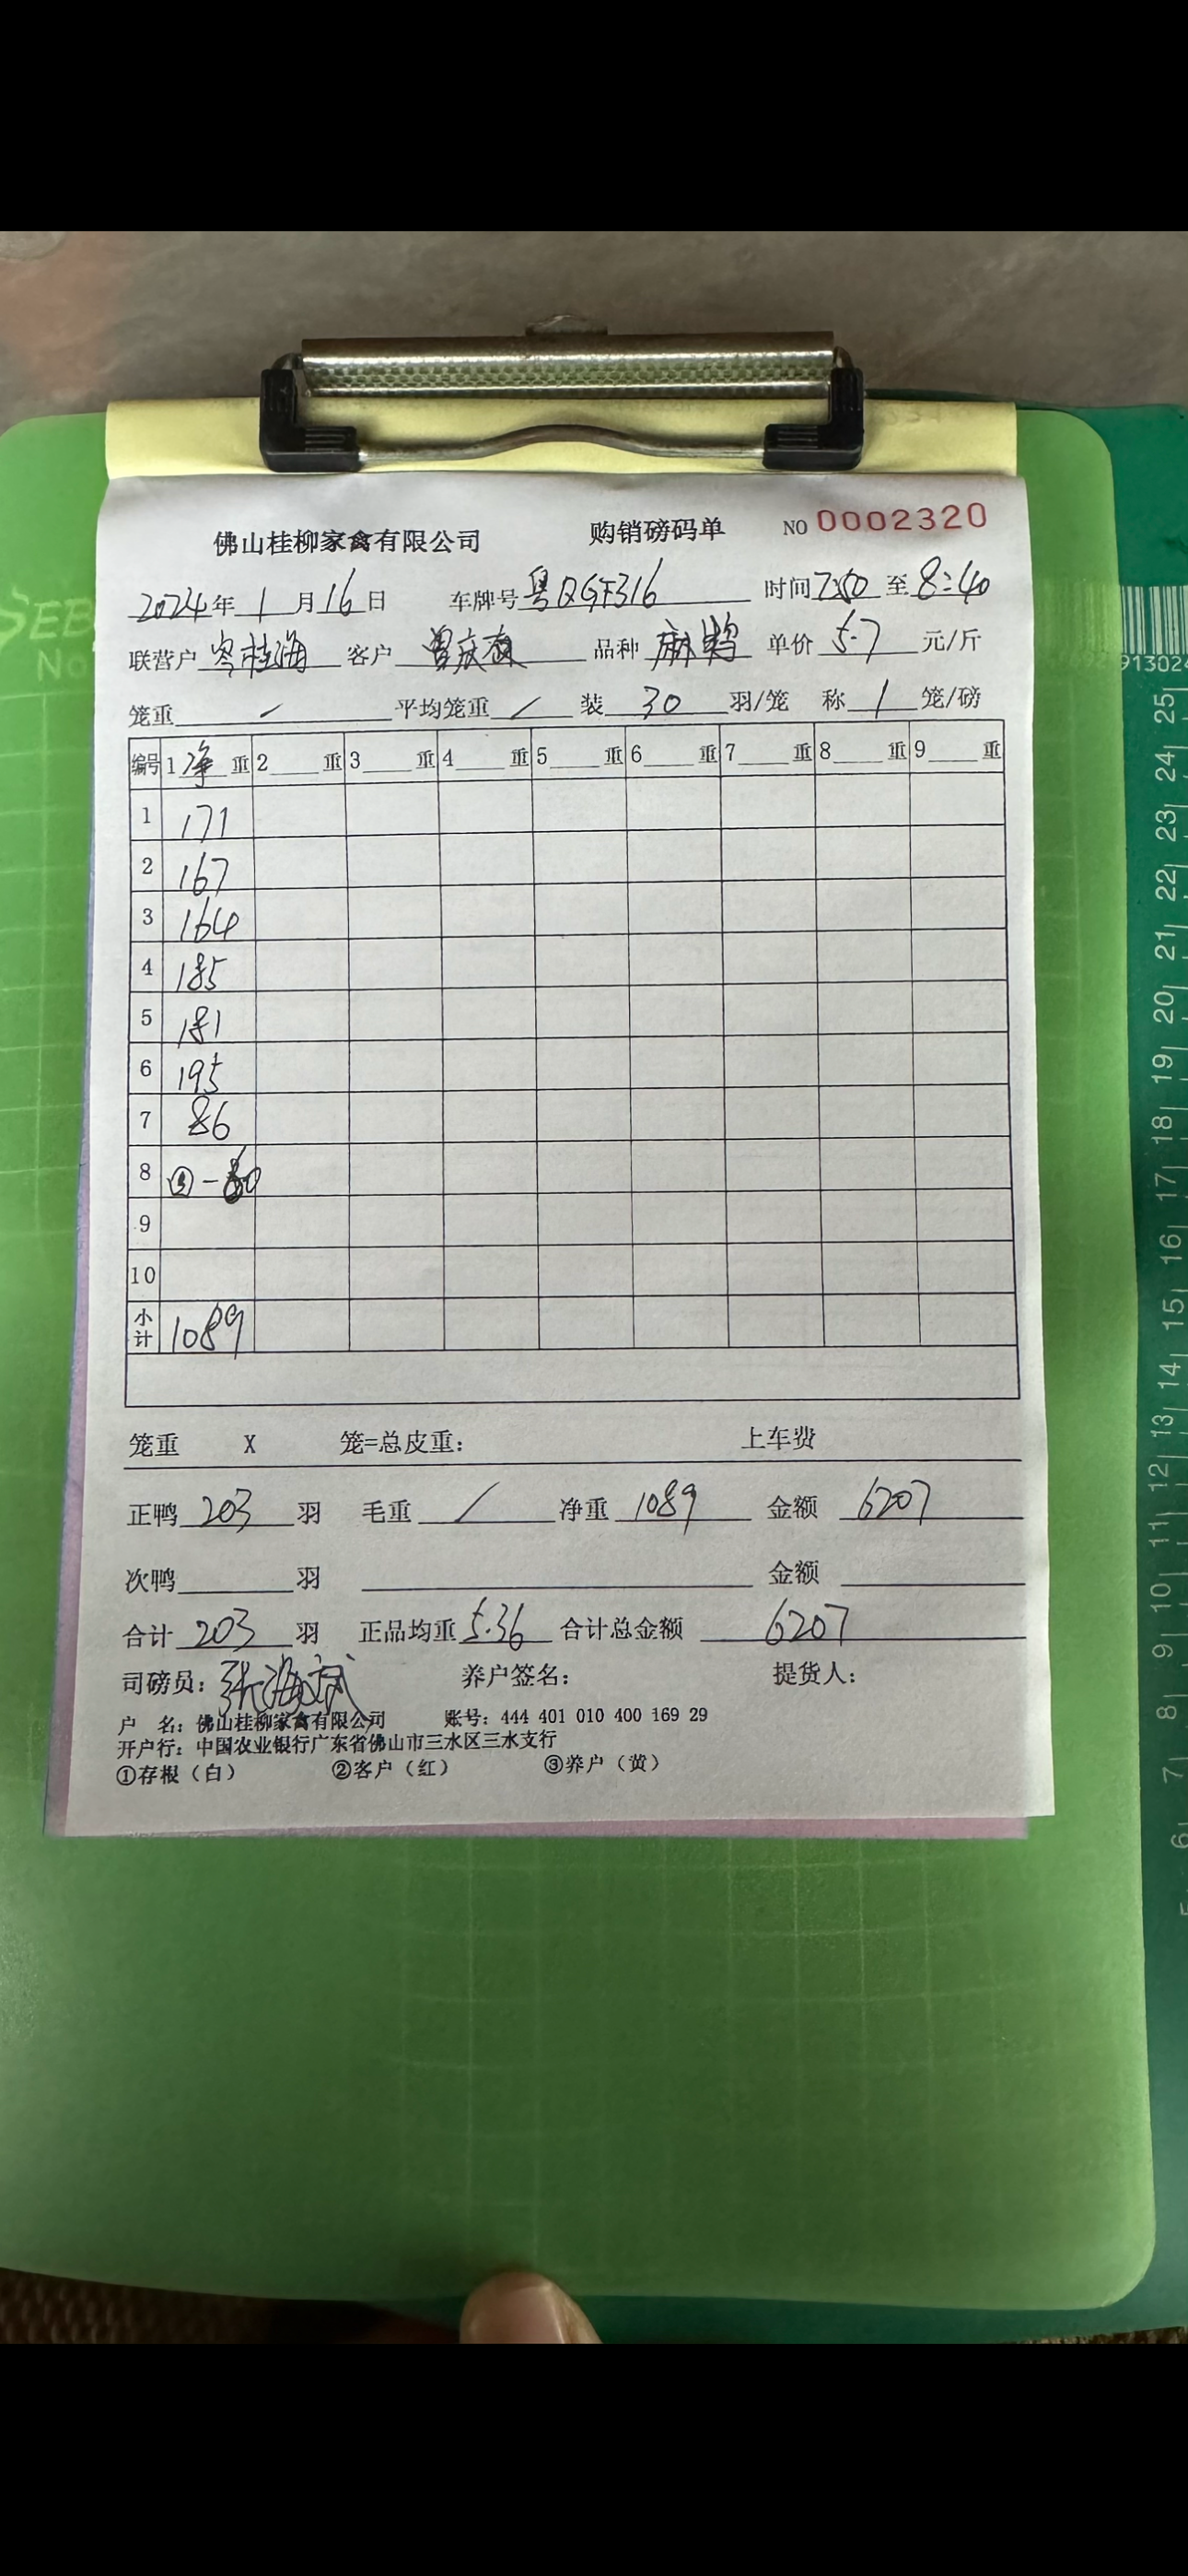 佛山桂柳家禽有限公司 购销磅码单 NO 0002320
2024年1月16日 车牌号粤QGF316 时间7:50至8:40
联营户岑桂海 客户曾庆 品种麻鸭 单价5.7元/斤
笼重 / 平均笼重 / 装30羽/笼 称1笼/磅
编号 1净重 2 重 3 重 4 重 5 重 6 重 7 重 8 重 9 重
1 171
2 167
3 164
4 185
5 181
6 195
7 86
8 -60
9
10
小计 1089
笼重 X 笼=总皮重： 上车费
正鸭203羽 毛重 / 净重1089 金额6207
次鸭 羽 金额
合计203羽 正品均重5.36 合计总金额6207
司磅员：张海斌 养户签名： 提货人：
户 名：佛山桂柳家禽有限公司 账号：444 401 010 400 169 29
开户行：中国农业银行广东省佛山市三水区三水支行
①存根（白） ②客户（红） ③养户（黄）
SEB
No
913024
25 24 23 22 21 20 19 18 17 16 15 14 13 12 11 10 9 8 7 6 5